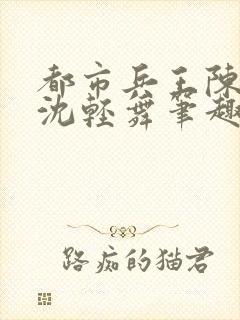 都市兵王陈
沈轻舞笔趣
路痴的猫君